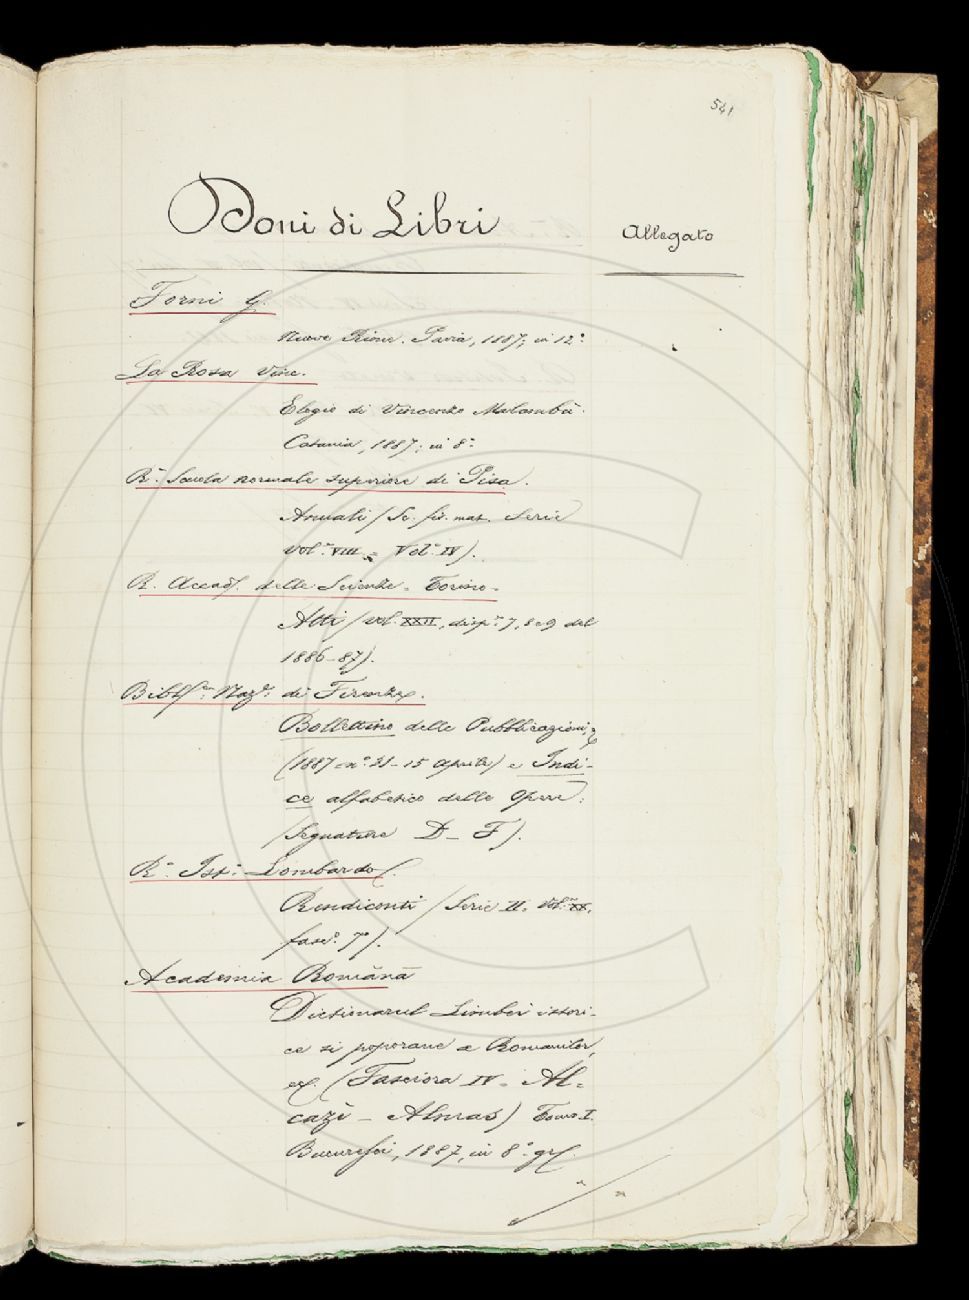 541
Doni di Libri
Allegato
Forni G.
Nuove Rime. Pavia, 1887; in 12.°
La Rosa Vinc.
Elogio di Vincenzo
Catania, 1887; in 8.°
R.ª Scuola normale superiore di Pisa.
Annali (Sc. fis. mat. Serie
Vol.e VIII = Vol.e IV).
R. Accad. delle Scienze - Torino -
Atti (vol. XXII, disp.e 7, 8 e 9 del
1886-87).
Bibl. Naz.e di Firenze.
Bollettino delle Pubblicazioni,
(1887 = n.° 31 - 15 aprile) e Indi-
ce alfabetico delle Opere;
(Segnature D - F).
R.° Ist.° Lombardo.
Rendiconti (Serie II. Vol.e XX.
fasc.° 7°).
Academia Română
Dictionarul Limbei istori-
ce si poporane a Romanilor,
(Fasciora IV = Al-
cazi - Almas) Tom. I.
Bucuresci, 1887, in 8.° gr.